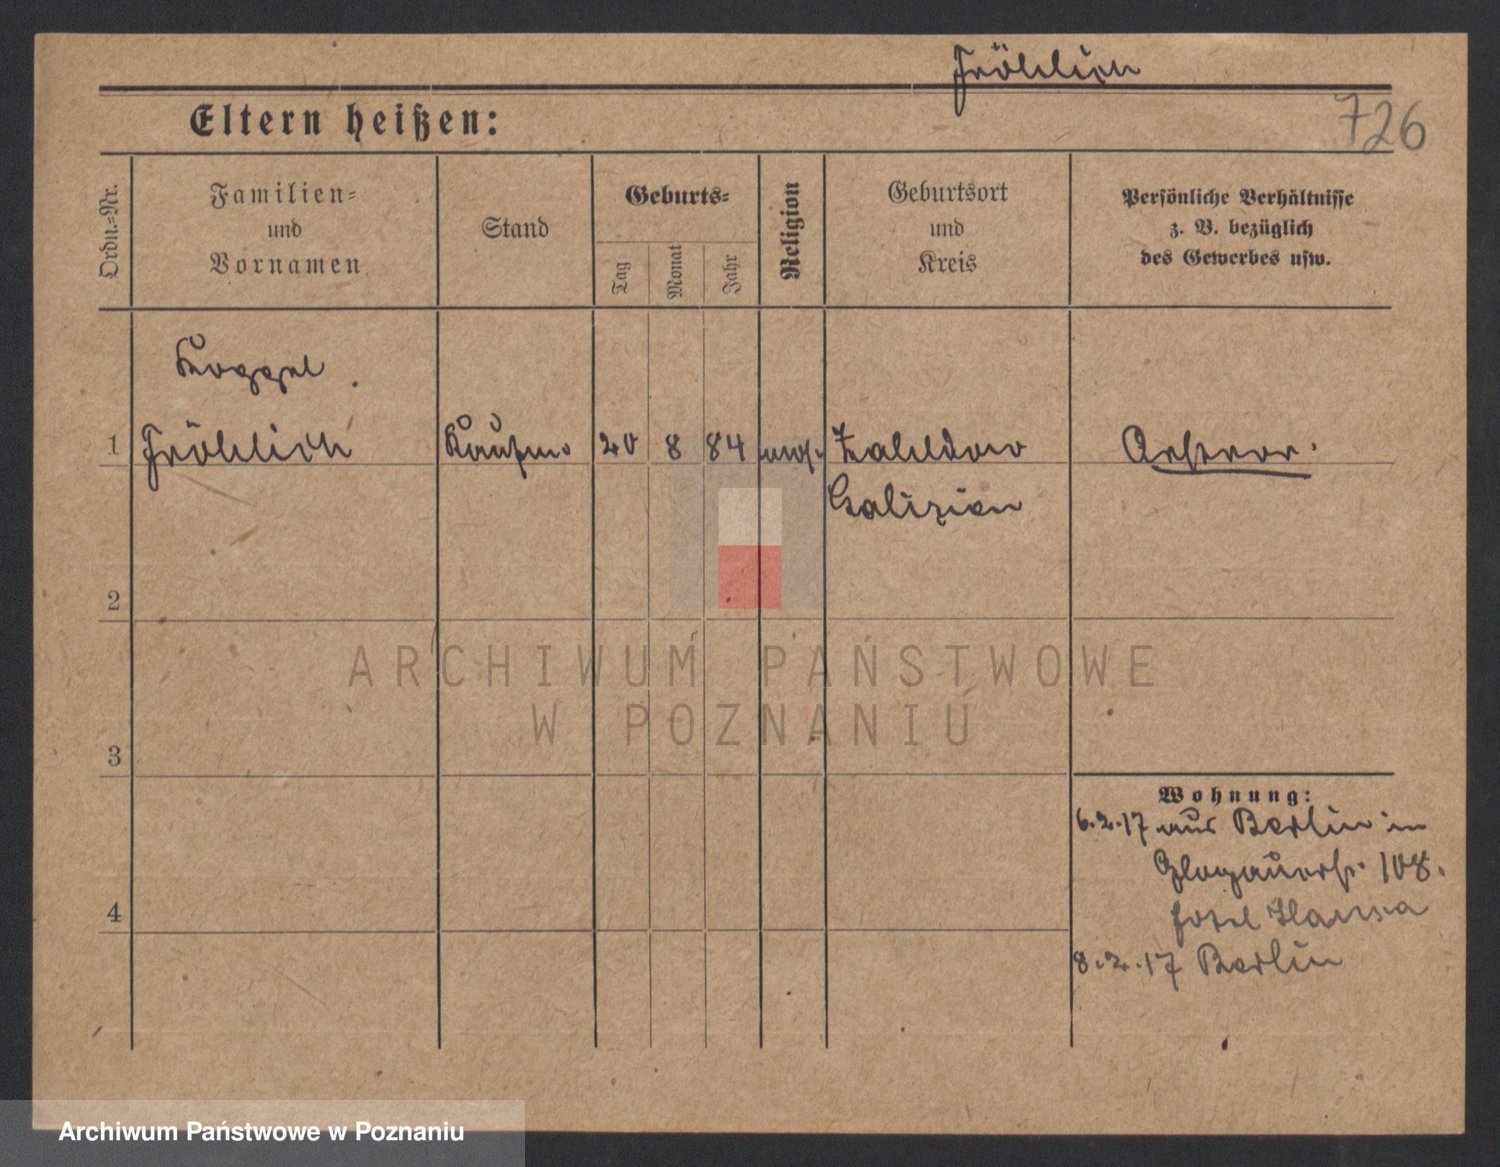 Fröhlich
726
Eltern heißen:
Ordn.-Nr.
Familien-
und
Vornamen
Stand
Geburts-
Tag
Monat
Jahr
Religion
Geburtsort
und
Kreis
Persönliche Verhältnisse
z. B. bezüglich
des Gewerbes usw.
1
Fröhlich
Kaufm.
20
8
84
mos.
Galizien
2
3
4
Wohnung:
6.2.17 aus Berlin in
Glogauerstr. 108.
Hotel Hansa
8.2.17 Berlin
ARCHIWUM PAŃSTWOWE
W POZNANIU
Archiwum Państwowe w Poznaniu